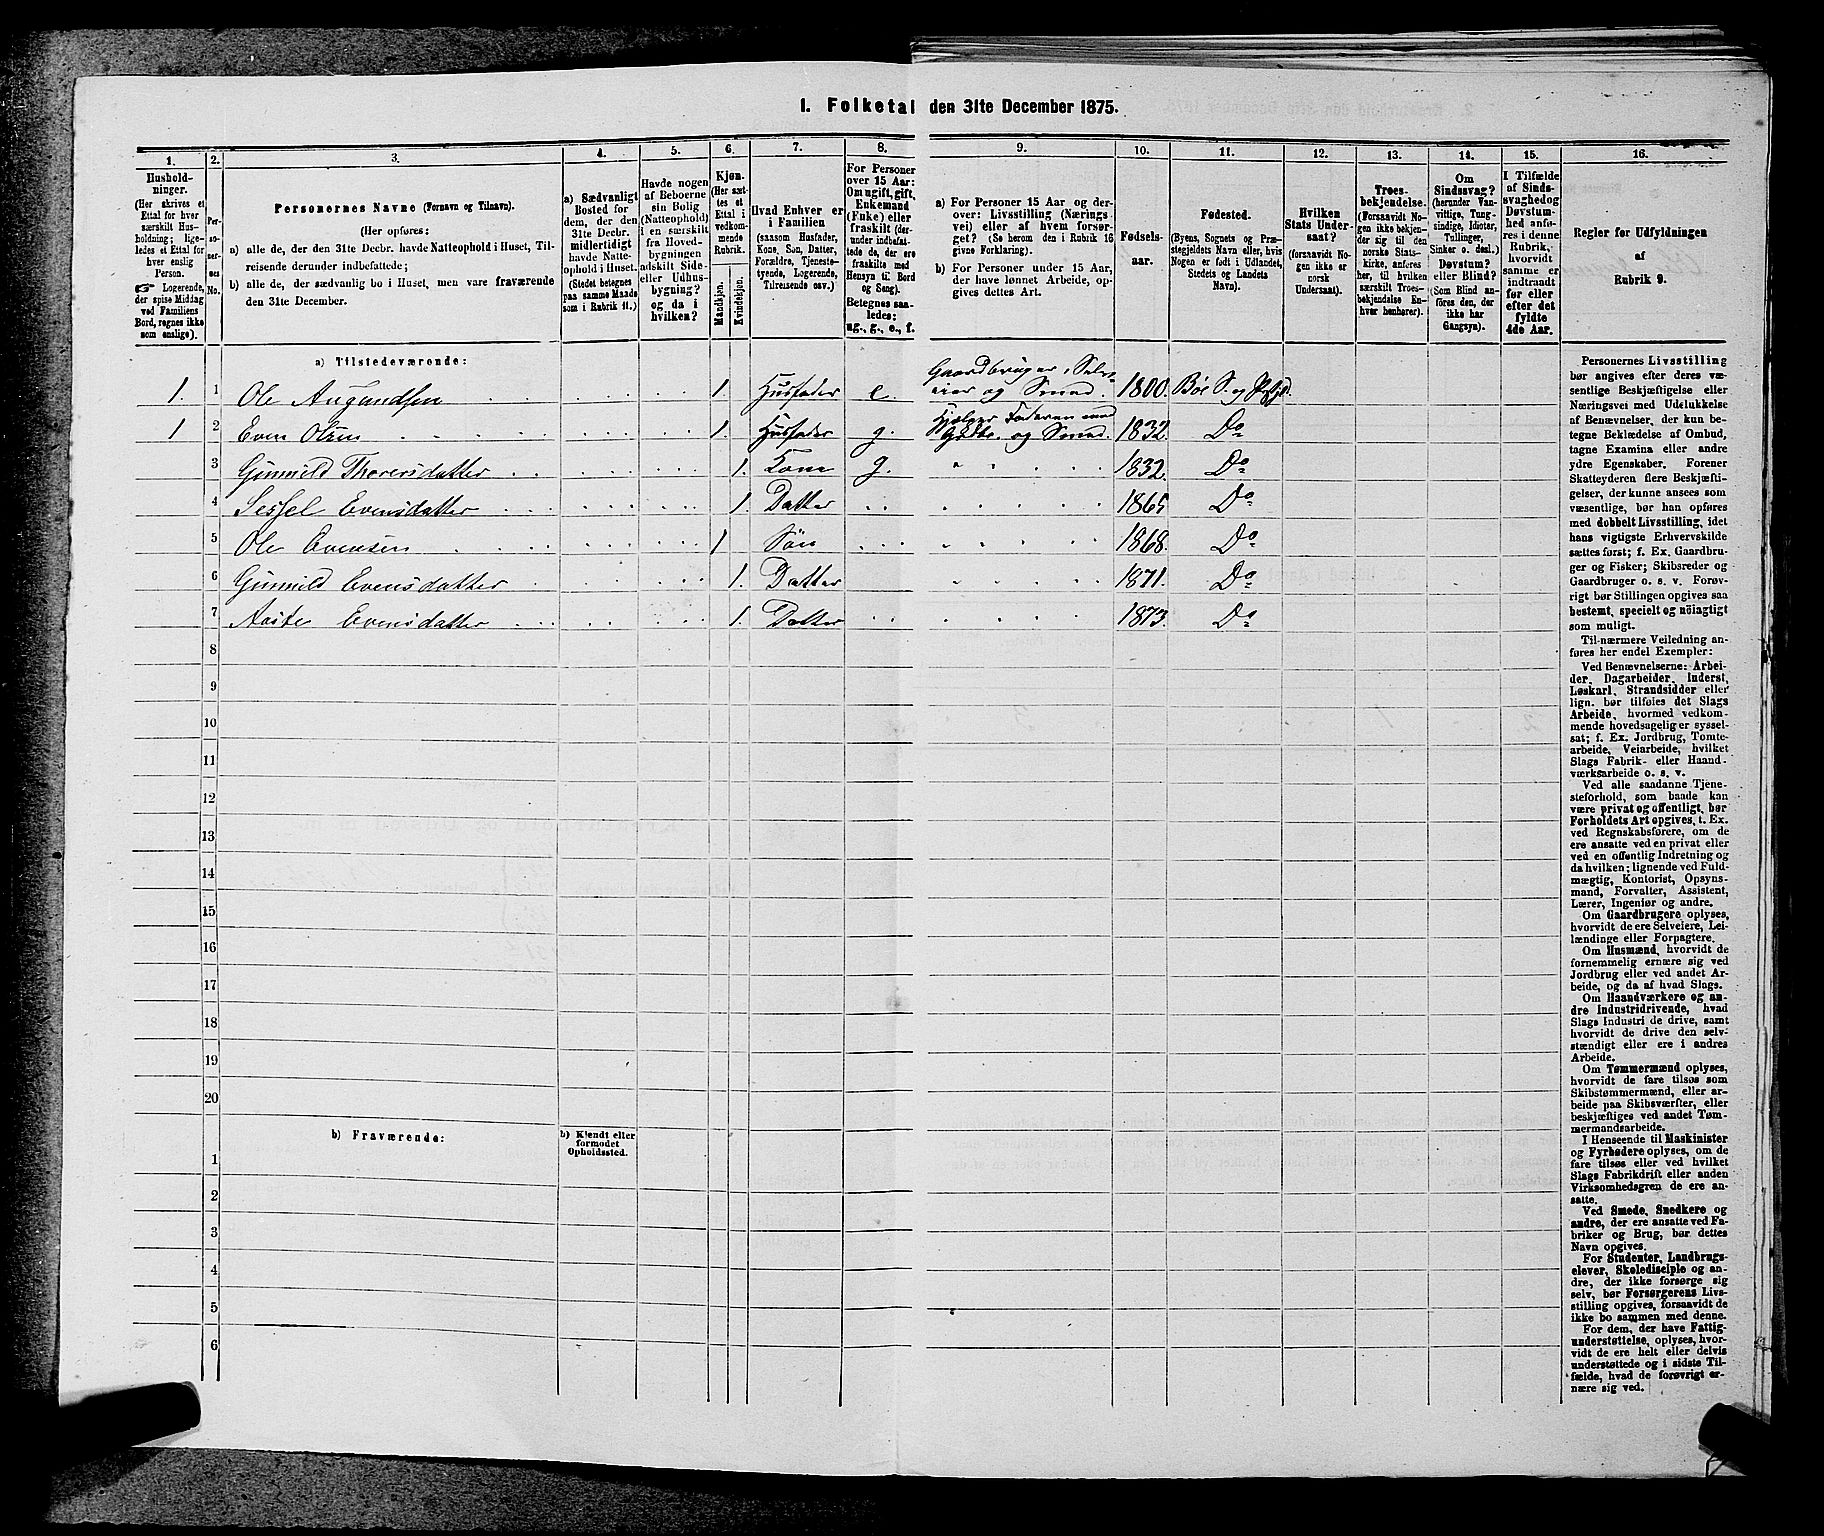 1. Folketal den 31te December 1875.
1.
Hushold-
ninger.
(Her skrives et
Ettal for hver
særskilt Hus-
holdning; lige-
ledes et Ettal for
hver enslig
Person.
☞ Logerende,
der spise Middag
ved Familiens
Bord, regnes ikke
som enslige).
2.
Per-
so-
ner-
nes
No.
3.
Personernes Navne (Fornavn og Tilnavn).
(Her opføres:
a) alle de, der den 31te Decbr. havde Natteophold i Huset, Til-
reisende derunder indbefattede;
b) alle de, der sædvanlig bo i Huset, men vare fraværende
den 31te December.
4.
a) Sædvanligt
Bosted for
dem, der den
31te Decbr.
midlertidigt
havde Natte-
ophold i Huset.
(Stedet betegnes
paa samme Maade
som i Rubrik 11.)
5.
Havde nogen
af Beboerne
sin Bolig
(Natteophold)
i en særskilt
fra Hoved-
bygningen
adskilt Side-
eller Udhus-
bygning?
og da i
hvilken?
6.
Kjøn.
(Her sæt-
tes et
Ettal i
vedkom-
mende
Rubrik.
Mandkjøn.
Kvindekjøn.
7.
Hvad Enhver er
i Familien
(saasom Husfader,
Kone, Søn, Datter,
Forældre, Tjeneste-
tyende, Logerende,
Tilreisende osv.)
8.
For Personer
over 15 Aar:
Om ugift, gift,
Enkemand
(Enke) eller
fraskilt (der-
under indbefat-
tede de, der ere
fraskilte med
Hensyn til Bord
og Seng).
Betegnes saa-
ledes:
ug., g., e., f.
9.
a) For Personer 15 Aar og der-
over: Livsstilling (Nærings-
vei) eller af hvem forsør-
get? (Se herom den i Rubrik 16
givne Forklaring).
b) For Personer under 15 Aar,
der have lønnet Arbeide, op-
gives dettes Art.
10.
Fødsels-
aar.
11.
Fødested.
(Byens, Sognets og Præ-
stegjeldets Navn eller, hvis
Nogen er født i Udlandet,
Stedets og Landets
Navn).
12.
Hvilken
Stats Under-
saat?
(forsaavidt No-
gen ikke er
norsk
Undersaat).
13.
Troes-
bekjendelse.
(Forsaavidt No-
gen ikke bekjen-
der sig til den
norske Stats-
kirke, anføres
her, til hvilken
særskilt Troes-
bekjendelse En-
hver henhører).
14.
Om
Sindssvag?
(herunder Van-
vittige, Tung-
sindige, Idioter,
Tullinger,
Sinker o. desl.)
Døvstum?
eller Blind?
(Som Blind an-
føres den, der
ikke har
Gangsyn).
15.
I Tilfælde
af Sinds-
svaghed og
Døvstum-
hed anfø-
res i denne
Rubrik,
hvorvidt
samme er
indtraadt
før eller
efter det
fyldte
4de Aar.
16.
Regler før Udfyldningen
af
Rubrik 9.
a) Tilstedeværende:
1. 1 Ole Augundsen 1. Husfader e. Gaardbruger, Selv-
eier og Smed. 1800. Bøe S. og Prgjd.
1 2 Even Olsen 1. Husfader g. Hjælper Faderen med
Gdbr. og Smed. 1832. Do
3 Gunnild Thorersdatter 1. Kone g. 1832. Do
4 Sessel Evensdatter 1. Datter 1865 Do
5 Ole Evensen 1 Søn 1868. Do
6 Gunnild Evensdatter 1. Datter 1871. Do
7 Aaste Evensdatter 1. Datter 1873. Do
8
9
10
11
12
13
14
15
16
17
18
19
20
b) Fraværende:
b) Kjendt eller
formodet
Opholdssted.
1
2
3
4
5
6
Personernes Livsstilling
bør angives efter deres væ-
sentlige Beskjæftigelse eller
Næringsvei med Udelukkelse
af Benævnelser, der kun be-
tegne Beklædelse af Ombud,
tagne Examina eller andre
ydre Egenskaber. Forener
Skatteyderen flere Beskjæfti-
gelser, der kunne ansees som
væsentlige, bør han opføres
med dobbelt Livsstilling, idet
hans vigtigste Erhvervskilde
sættes først; f. Ex. Gaardbru-
ger og Fisker; Skibsreder og
Gaardbruger o. s. v. Forøv-
rigt bør Stillingen opgives saa
bestemt, specielt og nöiagtigt
som muligt.
Til nærmere Veiledning an-
føres her endel Exempler:
Ved Benævnelserne: Arbei-
der, Dagarbeider, Inderst,
Løskarl, Strandsidder eller
lign. bør tilføies det Slags
Arbeide, hvormed vedkom-
mende hovedsagelig er syssel-
sat; f. Ex. Jordbrug, Tomte-
arbeide, Veiarbeide, hvilket
Slags Fabrik- eller Haand-
værksarbeide o. s. v.
Ved alle saadanne Tjene-
steforhold, som baade kan
være privat og offentligt, bør
Forholdets Art opgives, t. Ex.
ved Regnskabsførere, om de
ere ansatte ved en privat eller
ved en offentlig Indretning og
da hvilken; lignende ved Fuld-
mægtig, Kontorist, Opsyns-
mand, Forvalter, Assistent,
Lærer, Ingeniør og andre.
Om Gaardbrugere oplyses,
hvorvidt de ere Selveiere, Lei-
lændinge eller Forpagtere.
Om Husmænd, hvorvidt de
fornemmelig ernære sig ved
Jordbrug eller ved andet Ar-
beide, og da af hvad Slags.
Om Haandværkere og an-
dre Industridrivende, hvad
Slags Industri de drive, samt
hvorvidt de drive den selv-
stændigt eller ere i andres
Arbeide.
Om Tømmermænd oplyses,
hvorvidt de fare tilsøs som
Skibstømmermænd, eller ar-
beide paa Skibsværfter, eller
beskjæftiges ved andet Tøm-
mermandsarbeide.
I Henseende til Maskinister
og Fyrbødere oplyses, om de
fare tilsøs eller ved hvilket
Slags Fabrikdrift eller anden
Virksomhedsgren de ere an-
satte.
Ved Smede, Snedkere og
andre, der ere ansatte ved Fa-
briker og Brug, bør dettes
Navn opgives.
For Studenter, Landbrugs-
elever, Skoledisciple og an-
dre, der ikke forsørge sig
selv, bør Forsørgerens Livs-
stilling opgives, forsaavidt de
ikke bo sammen med denne.
For dem, der have Fattig-
understøttelse, oplyses, hvor-
vidt de ere helt eller delvis
understøttede og i sidste Til-
fælde, hvad de forøvrigt er-
nære sig ved.